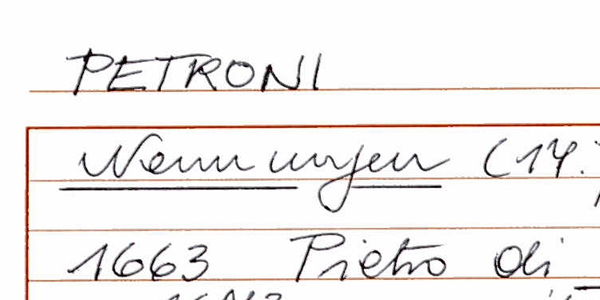 PETRONI
Nennungen (14.
1663 Pietro di